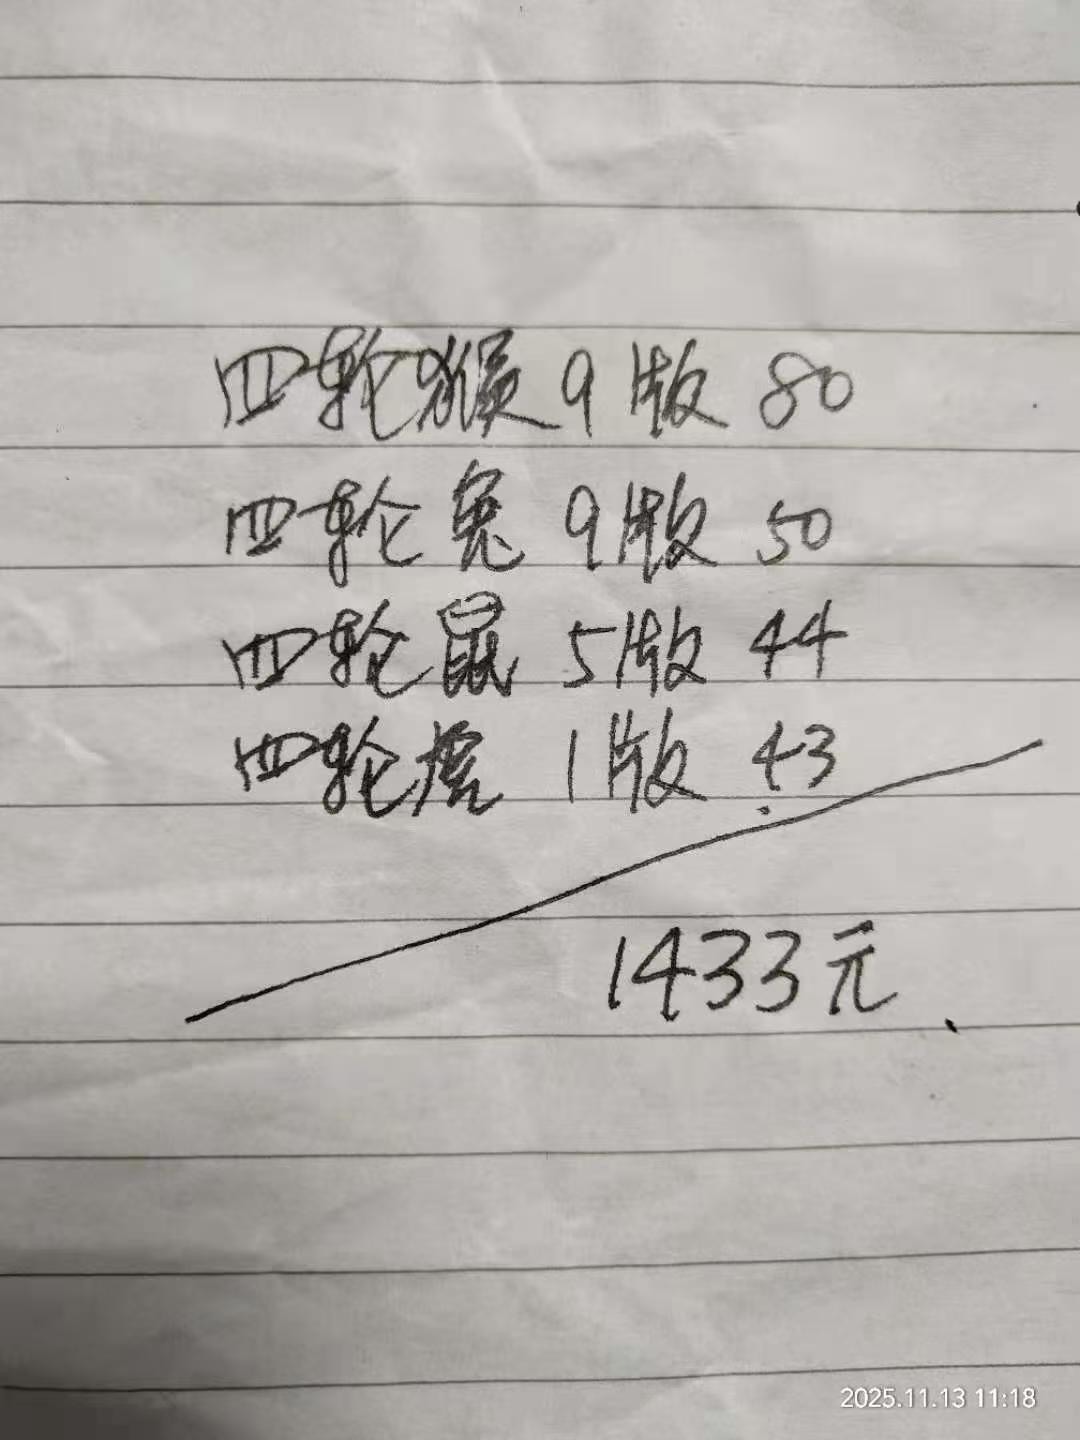 四轮猴9版 80
四轮兔 9版 50
四轮鼠 5版 44
四轮 1版 43
1433元
2025.11.13 11:18